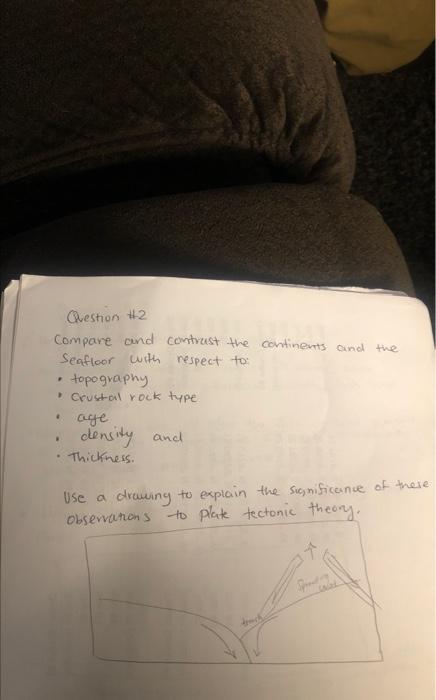 Question #2
Compare and contrast the continents and the
Seafloor with respect to:
• topography
• Crustal rock type
• age
• density and
• Thickness.
Use a drawing to explain the significance of these
observations to plate tectonic theory.
Spreading
center
trench